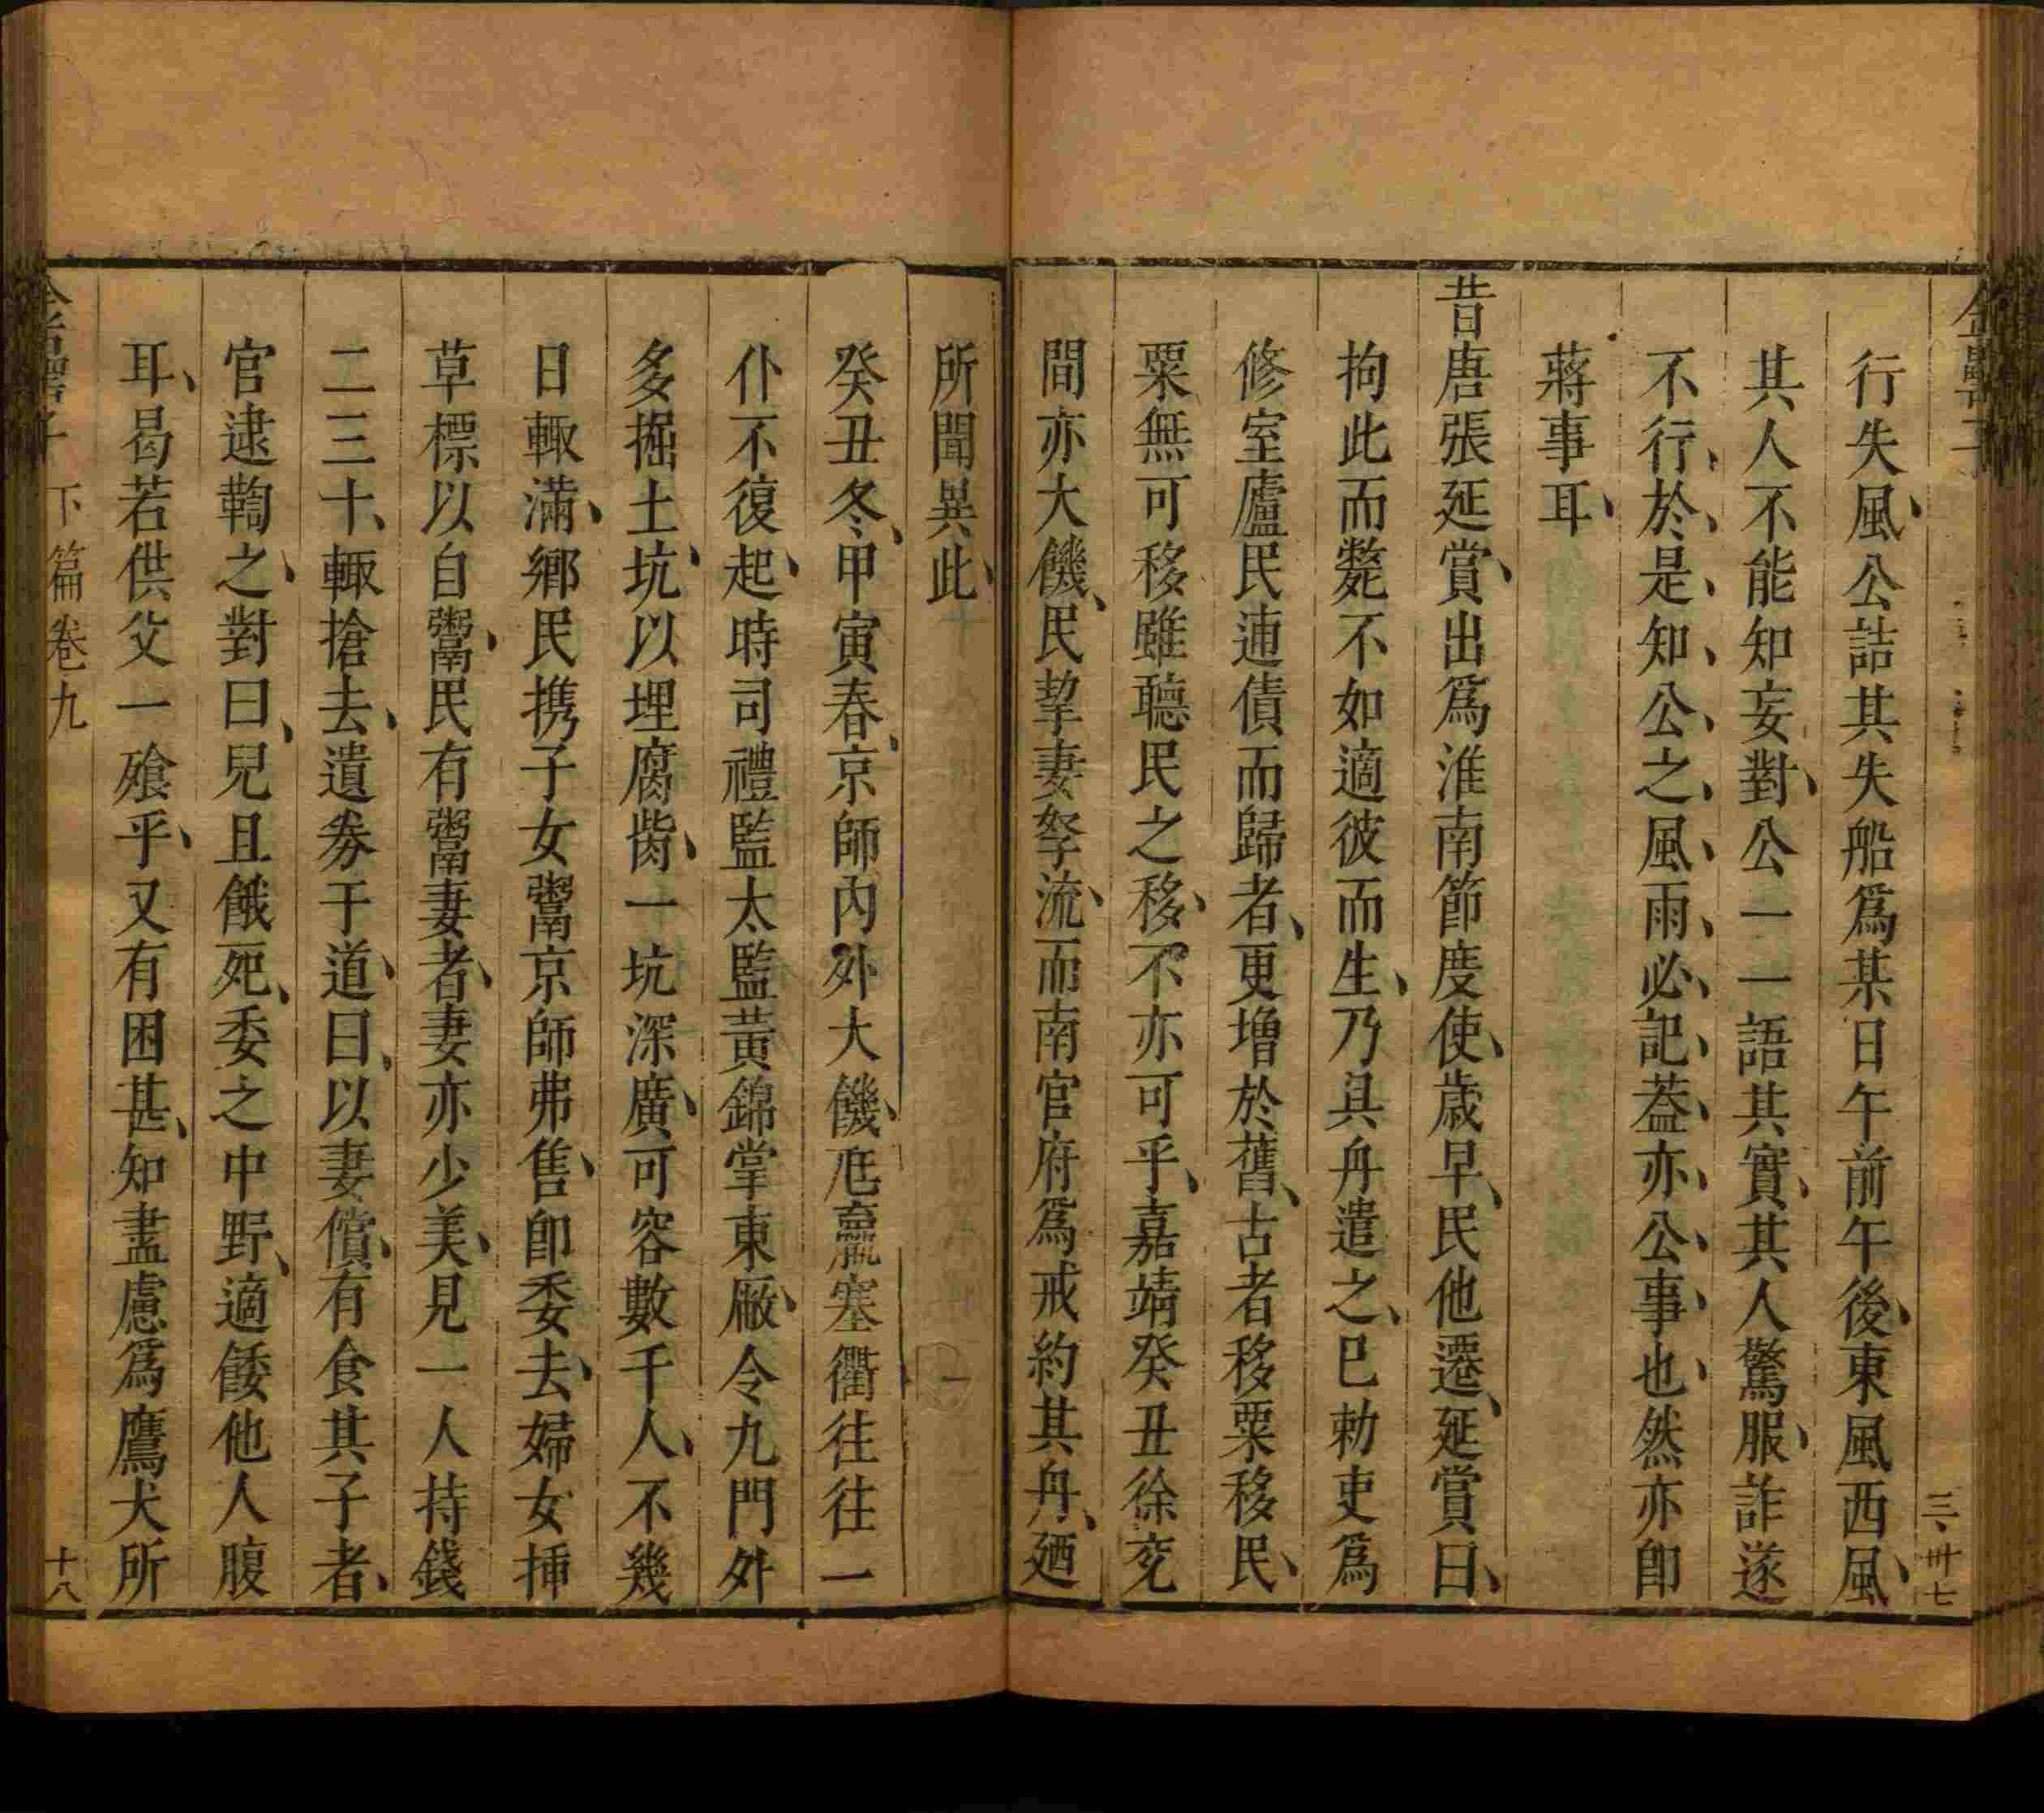 行失風公詰其失船爲某日午前午後東風西風
其人不能知妄對公一一語其實其人驚服詐遂
不行於是知公之風雨必記葢亦公事也然亦卽
蔣事耳
昔唐張延賞出爲淮南節度使歲旱民他遷延賞曰
拘此而斃不如適彼而生乃具舟遣之巳勅吏爲
修室廬民逋債而歸者更增於舊古者移粟移民
粟無可移雖聽民之移不亦可乎嘉靖癸丑徐兗
間亦大饑民挈妻孥流而南官府爲戒約其舟廼
所聞異此
癸丑冬甲寅春京師內外大饑尫羸塞衢往往一
仆不復起時司禮監太監黃錦掌東廠令九門外
多掘土坑以埋腐胔一坑深廣可容數千人不幾
日輙滿鄉民携子女鬻京師弗售卽委去婦女挿
草標以自鬻民有鬻妻者妻亦少美見一人持錢
二三十輙搶去遺券于道曰以妻償有食其子者
官逮鞫之對曰兒且餓死委之中野適餧他人腹
耳曷若供父一飱乎又有困甚知盡慮爲鷹犬所
下篇卷九
十八